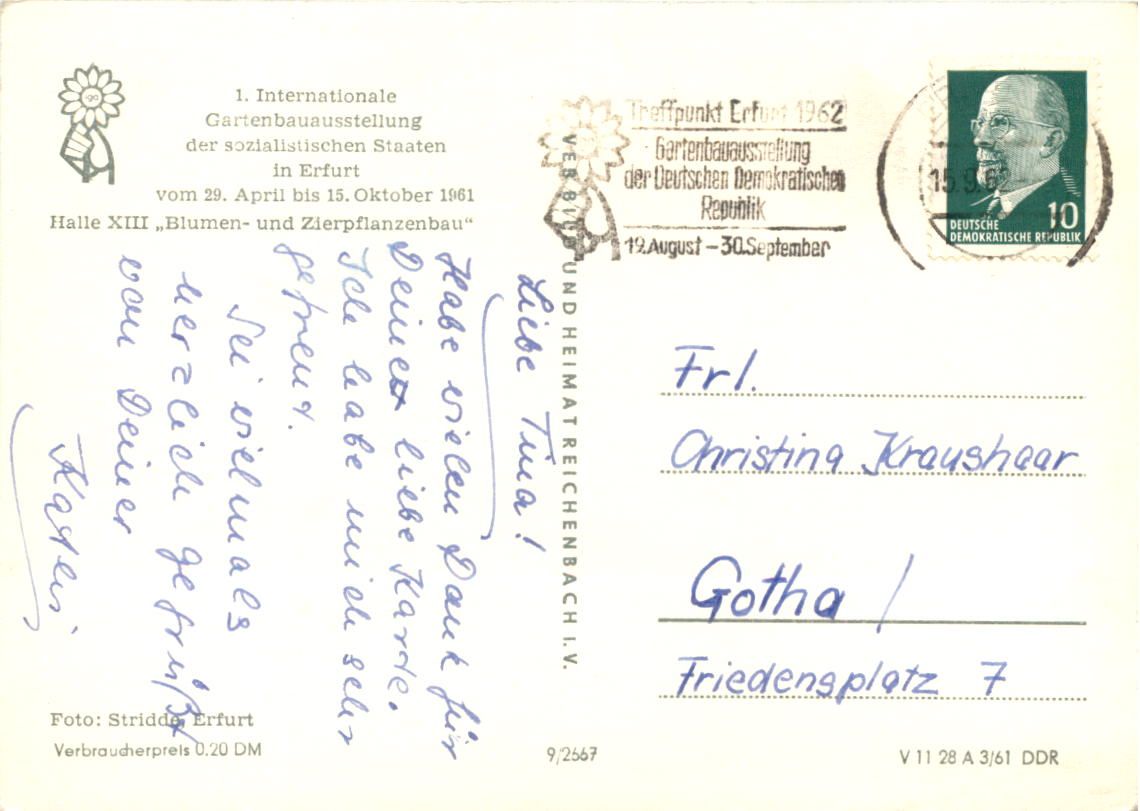 iga
1. Internationale
Gartenbauausstellung
der sozialistischen Staaten
in Erfurt
vom 29. April bis 15. Oktober 1961
Halle XIII „Blumen- und Zierpflanzenbau“
Liebe Tina!
Habe vielen Dank für
Deine liebe Karte.
Ich habe mich sehr
gefreut.
Sei vielmals
herzlich gegrüßt
von Deiner
Foto: Stridde, Erfurt
Verbraucherpreis 0.20 DM
VEB BILD UND HEIMAT REICHENBACH I. V.
9/2667
Treffpunkt Erfurt 1962
Gartenbauausstellung
der Deutschen Demokratischen
Republik
19. August – 30. September
15.9.
10
DEUTSCHE
DEMOKRATISCHE REPUBLIK
Frl.
Christina Kraushaar
Gotha /
Friedensplatz 7
V 11 28 A 3/61 DDR